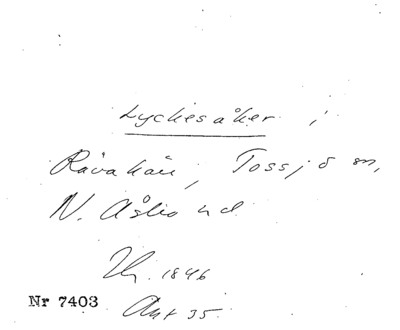 Lyckesåker i
Råvahäll, Tossjö sn,
N. Åsbo hd.
1846
Nr 7403
Akt 35